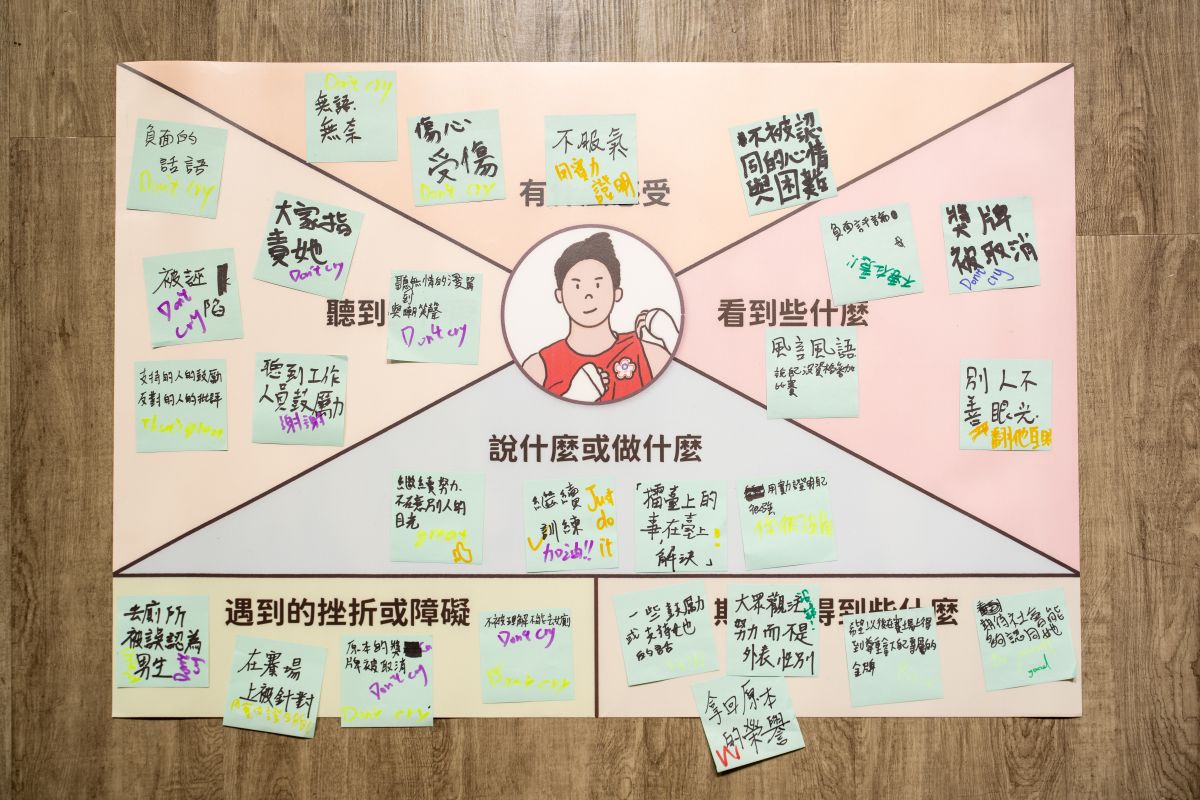 Don't cry
無語
無奈
傷心
受傷
Don't cry
不服氣
用實力
證明
不被認
同的心情
與困難
有
受
負面的
話語
Don't cry
大家指
責她
Don't cry
被誣
陷
Don't
cry
聽無情的
到
與嘲笑聲
Don't cry
聽到
支持的人的鼓勵
反對的人的批評
聽到工作
人員鼓勵
謝謝
負面評論
不要在意!!
獎牌
被取消
Don't
cry
看到些什麼
風言風語
說她沒資格參加
比賽
別人不
善眼光
說什麼或做什麼
繼續努力
不在意別人的
目光
great
繼續
訓練
加油!!
Just
do
it
「擂臺上的
事在臺上
解決」
很強
遇到的挫折或障礙
去廁所
被誤認為
男生
在賽場
上被針對
原本的獎
牌被取消
Don't cry
Don't cry
不被理解不能去女廁
Don't cry
Don't cry
得到些什麼
一些鼓勵
或支持她
的話
大眾觀注
努力而不是
外表,性別
希望以後在賽場上得
到尊重拿下屬於她的
金牌
期待社會能
夠認同她
good
拿回原本
的榮譽